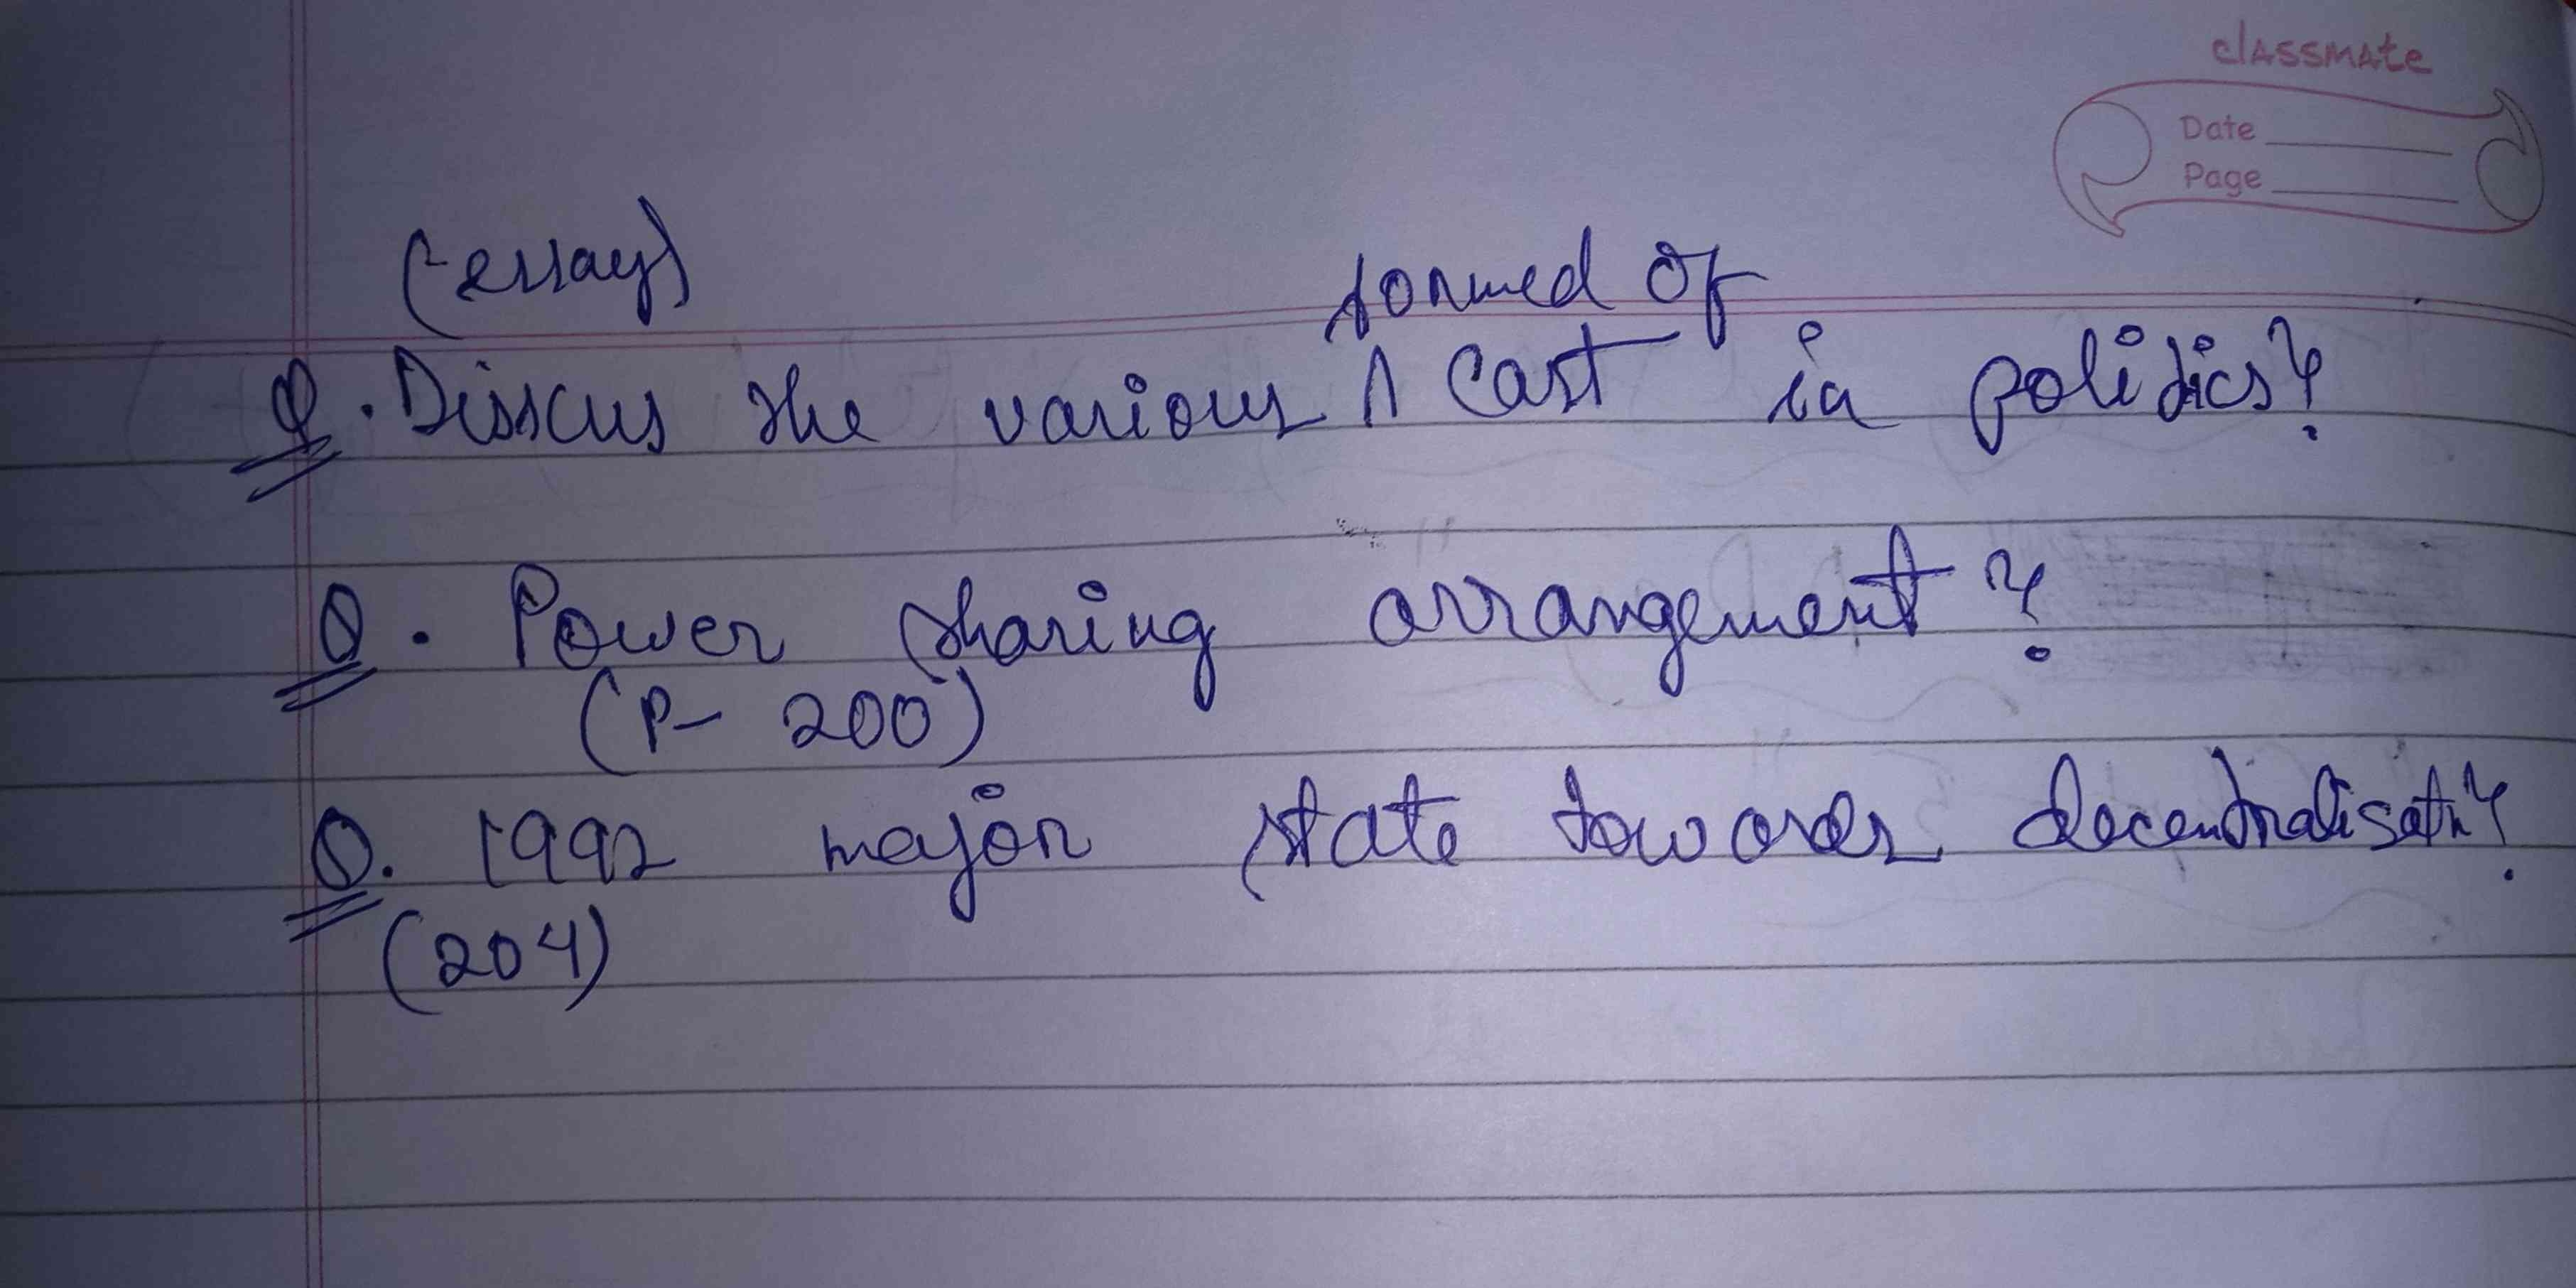 classmate
Date
Page
(essay)
formed of
Q. Disscus the various ∧ Cast in politics?
Q. Power sharing arrangement?
(P- 200)
Q. 1992 major state towards decentralisatn?
(204)